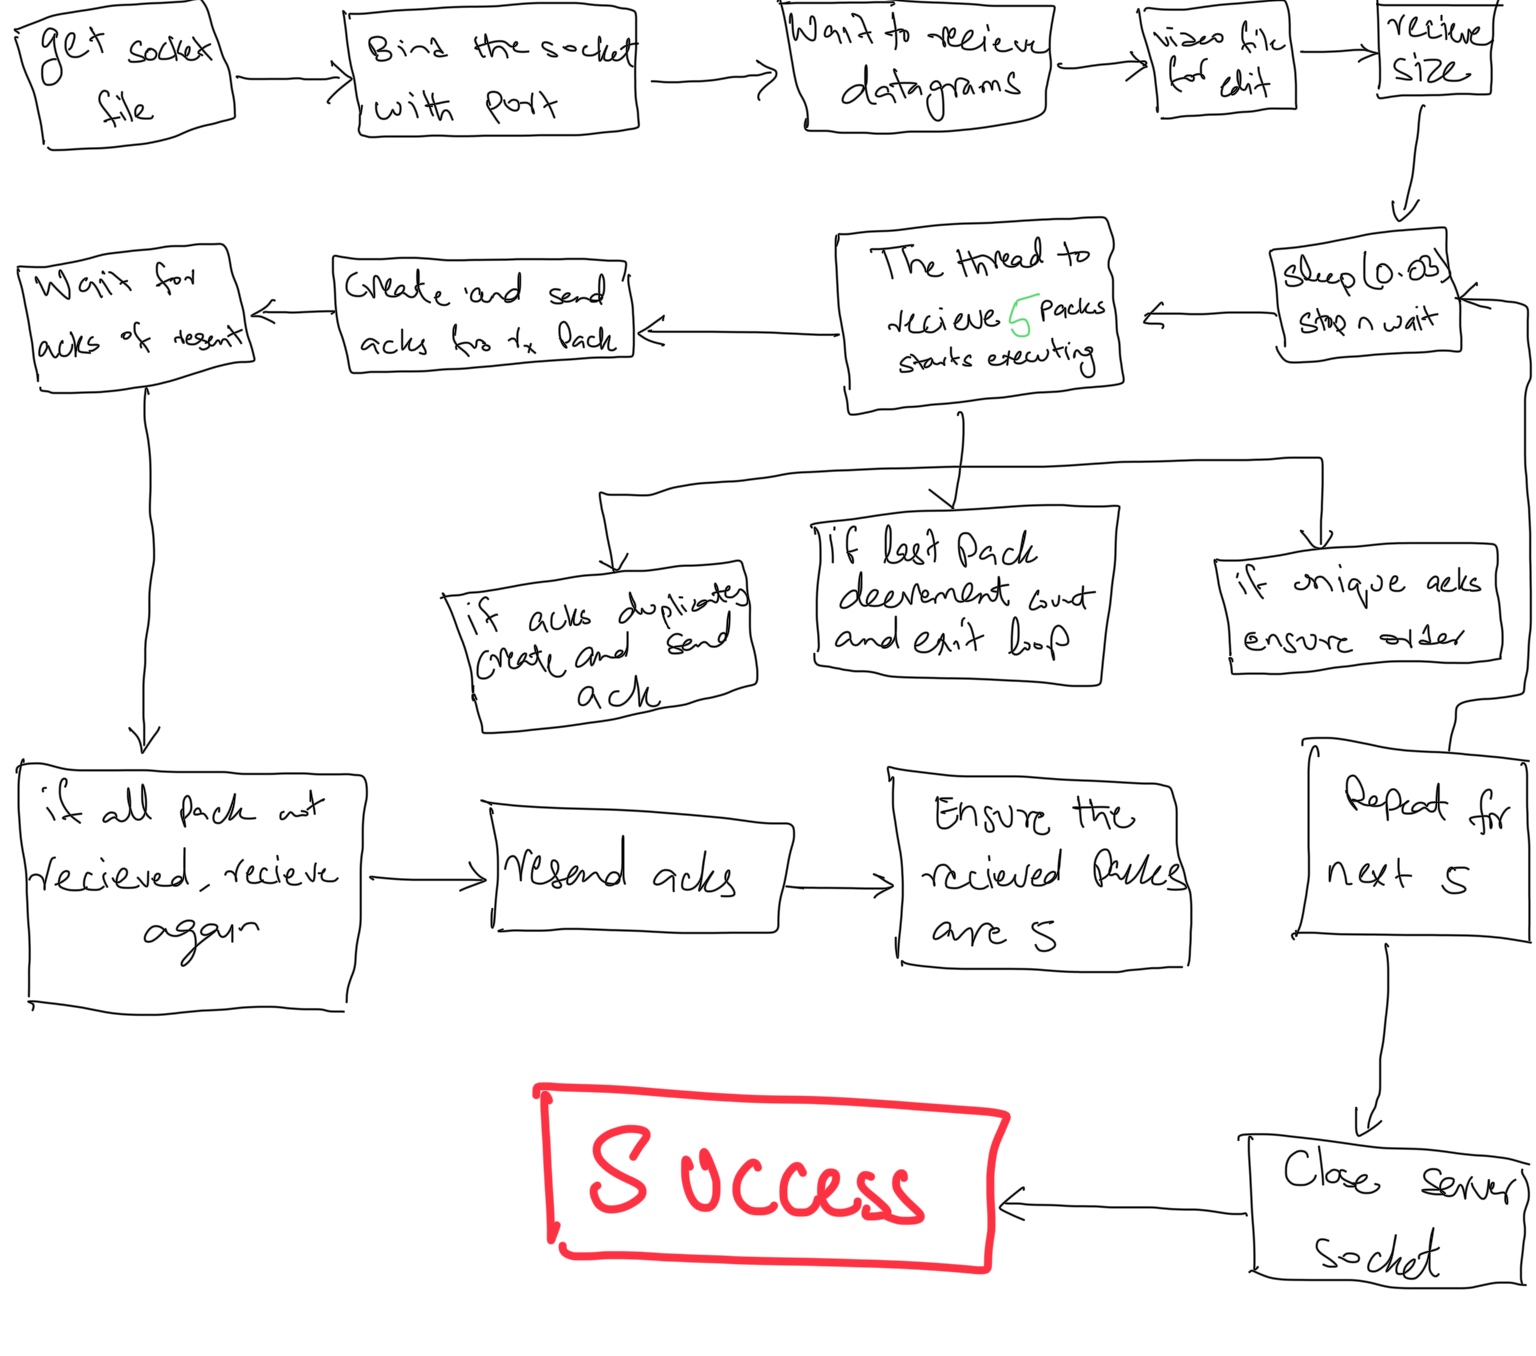 get socket
file
Bind the socket
with port
Wait to recieve
datagrams
video file
for edit
recieve
size
sleep(0.03)
stop n wait
The thread to
recieve 5 packs
starts executing
Create and send
acks for rx Pack
Wait for
acks of resent
if acks duplicates
create and send
ack
if last pack
decrement count
and exit loop
if unique acks
ensure order
if all pack not
recieved, recieve
again
resend acks
Ensure the
recieved packs
are 5
Repeat for
next 5
Close server
socket
Success